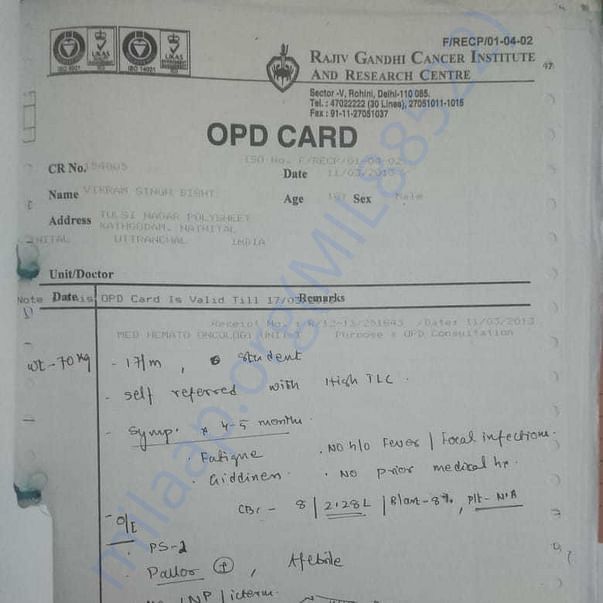 F/RECP/01-04-02
RAJIV GANDHI CANCER INSTITUTE
AND RESEARCH CENTRE
Sector -V, Rohini, Delhi-110 085.
Tel. : 47022222 (30 Lines), 27051011-1015
Fax : 91-11-27051037
ISO 9001
UKAS
ISO 14001
UKAS
OPD CARD
ISO No. F/RECP/01-04-02
CR No.
Date 11/03/2013
Name VIKRAM SINGH BISHT
Age Sex Male
Address TULSI NAGAR POLYSHEET
KATHGODAM, NAINITAL
UTTRANCHAL INDIA
Unit/Doctor
Note Date is OPD Card Is Valid Till 17/03 Remarks
Receipt No. : Date: 11/03/2013
MED HEMATO ONCOLOGY UNIT Purpose : OPD Consultation
wt-70 kg - 17/m, student
- self referred with High TLC.
- Symp. x 4-5 months.
. Fatigue . No h/o Fever / Focal infections.
. Giddiness . No prior medical hx.
CBC - 8 | 2.28L | Blast-8%, Plt-
- O/E
. PS-2
. Pallor +, Afebrile
milaap.org